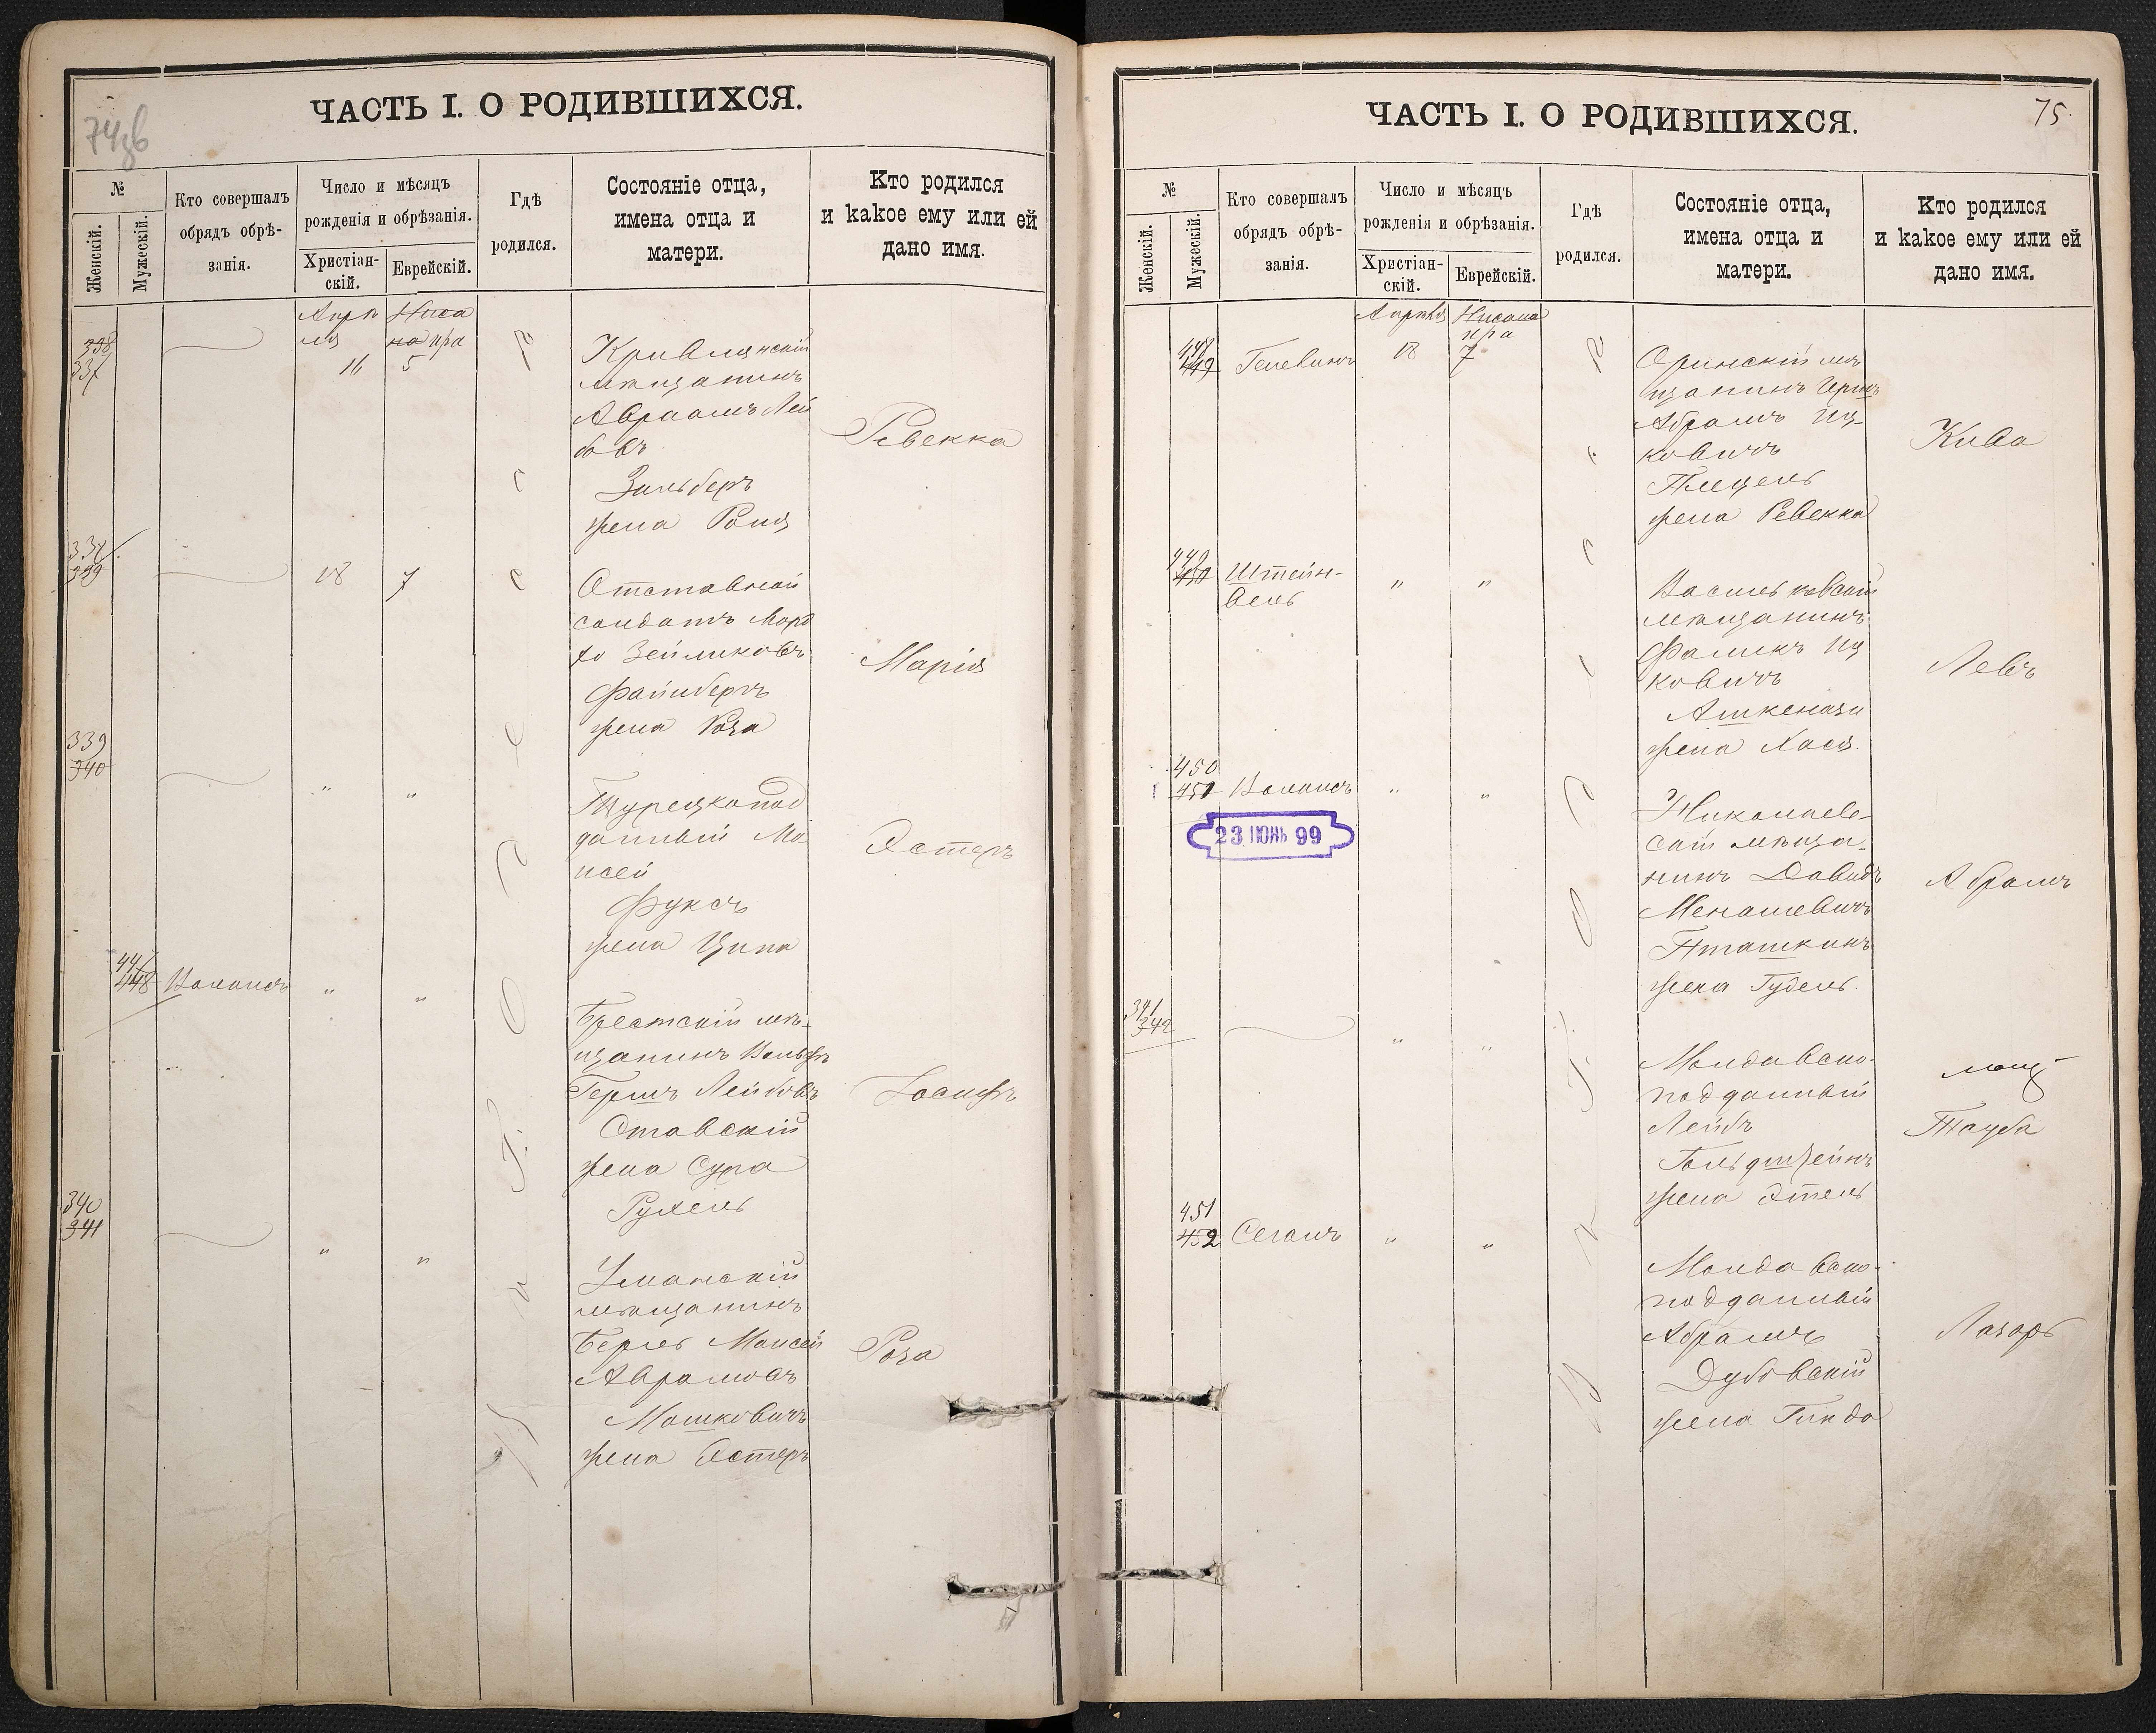 74зв
ЧАСТЬ I. О РОДИВШИХСЯ.
№
Женскій.
Мужескій.
Кто совершалъ
обрядъ обрѣ-
занія.
Число и мѣсяцъ
рожденія и обрѣзанія.
Христіан-
скій.
Еврейскій.
Гдѣ
родился.
Состояніе отца,
имена отца и
матери.
Кто родился
и какое ему или ей
дано имя.
Апрѣ
ля
Ниса
на ира
338
337
16
5
мѣщанинъ
Авраамъ Лей
бовъ
Зильберъ
жена
Ревекка
338
339
18
7
Отставной
солдатъ Морд
хо Зейликовъ
Файнбергъ
жена Роза
Марія
339
340
"
"
Турецкопод
данный Мо-
исей
Фуксъ
жена Ципа
Эстеръ
447
448
"
"
Брестскій мѣ-
щанинъ Вольфъ
Гершъ Лейбовъ
Ставскій
жена Сура
Рухель
Іосифъ
340
341
"
"
Уманскій
мѣщанинъ
Берль Моисей
Аврамовъ
Мошковичъ
жена Эстеръ
Роза
75.
ЧАСТЬ I. О РОДИВШИХСЯ.
№
Женскій.
Мужескій.
Кто совершалъ
обрядъ обрѣ-
занія.
Число и мѣсяцъ
рожденія и обрѣзанія.
Христіан-
скій.
Еврейскій.
Гдѣ
родился.
Состояніе отца,
имена отца и
матери.
Кто родился
и какое ему или ей
дано имя.
Апрѣля
Нисана
ира
448
449
18
7
Оринскій мѣ
щанинъ
Абрамъ Иц-
ковичъ
жена Ревекка
Кива
449
450
Штейн-
вель
"
"
Васильковскій
мѣщанинъ
Фаликъ Иц
ковичъ
Ашкенази
жена Хася.
Левъ
450
451
"
"
23 ІЮНЬ 99
Николаев-
скій мѣща-
нинъ Давидъ
Менашевичъ
Пташкинъ
жена Гудель.
Абрамъ
341
342
"
"
Молдавско-
подданный
Лейбъ
Гольдштейнъ
жена Этель
Тауба
451
452
Сегалъ
"
"
Молдавско-
подданный
Абрамъ
Дубовскій
жена Гинда
Лазарь